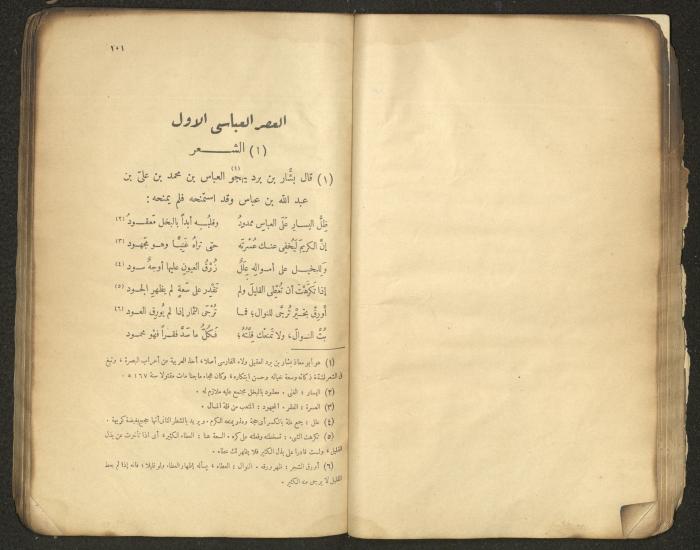 ١٠١
العصر العباسى الاول
(١) الشعر
(١) قال بشَّار بن برد يهجو (١) العباس بن محمد بن علىّ بن
عبد اللّه بن عباس وقد استمنحه فلم يمنحه :
ظِلُّ اليسارِ عَلَى العباسِ ممدودُ وقلبُه أبداً بالبخلِ معقودُ (٢)
إنَّ الكريمَ لَيُخفِى عنك عُسْرتَه حتى تراهُ غَنِيًّا وهو مجهود (٣)
وللبخيل على أموالِهِ عِلَلٌ زُرْقُ العيونِ عليها أوجهٌ سود (٤)
إذا تَكرَّهْتَ أن تُعْطِى القليلَ ولم تَقْدِر على سَعةٍ لم يظهرِ الجود (٥)
أورِقْ بخيرٍ تُرجَّى للنوال؛ فما تُرْجَى الثمار إذا لم يُورِق العود (٦)
بُثَّ النوالَ، ولا تمنعك قِلَّتُهُ؛ فكلُّ ما سدَّ فقراً فهْو محمود
(١) هو أبو معاذ بشار بن برد العقيلى ولاء الفارسى أصلا، أخذ العربية عن أعراب البصرة، ونبغ
فى الشعر لشدة ذكائه وسعة خياله وحسن ابتكاره، وكان هجاء ماجنا مات مقتولا سنة ١٦٧ ه .
(٢) اليسار : الغنى . معقود بالبخل مجتمع عليه ملازم له .
(٣) العسرة : الفقر . المجهود : المتعب من قلة المال .
(٤) علل : جمع علة بالكسر أى حجة وعذر يمنعه الكرم . ويريد بالشطر الثانى أنها حجج بغيضة كريهة .
(٥) تكرهت الشىء : تسخطته وفعلته على كره . السعة هنا : العطاء الكثير، أى اذا تأخرت عن بذل
القليل، ولست قادرا على بذل الكثير فلا يظهر لك عطاء .
(٦) أورق الشجر : ظهر ورقه . النوال : العطاء، يسأله إظهار العطاء ولو قليلا؛ فانه إذا لم يعط
القليل لا يرجى منه الكثير .